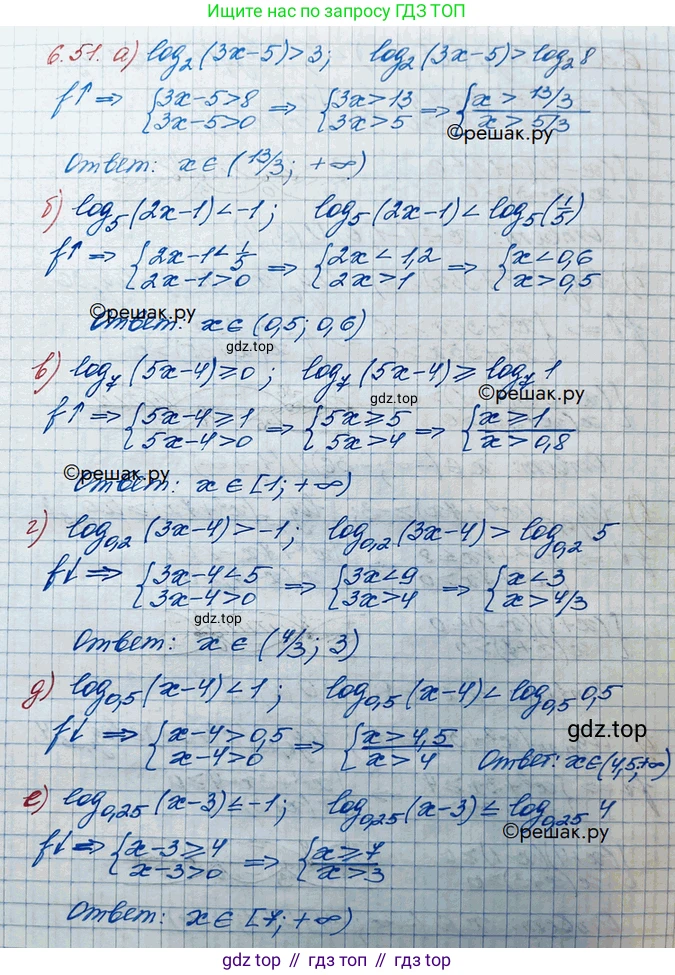 Ищите решебник по запросу ГДЗ ТОП
6.51. а) log₂(3x-5)>3; log₂(3x-5)>log₂8
f↑ ⇒ {3x-5>8 3x-5>0 ⇒ {3x>13 3x>5 ⇒ {x>13/3 x>5/3
©решак.ру
Ответ: x∈(13/3; +∞)
б) log₅(2x-1)<-1; log₅(2x-1)<log₅(1/5)
f↑ ⇒ {2x-1<1/5 2x-1>0 ⇒ {2x<1,2 2x>1 ⇒ {x<0,6 x>0,5
©решак.ру
Ответ: x∈(0,5; 0,6)
gdz.top
в) log₇(5x-4)≥0; log₇(5x-4)≥log₇1
gdz.top ©решак.ру
f↑ ⇒ {5x-4≥1 5x-4>0 ⇒ {5x≥5 5x>4 ⇒ {x≥1 x>0,8
©решак.ру
Ответ: x∈[1; +∞)
г) log₀,₂(3x-4)>-1; log₀,₂(3x-4)>log₀,₂5
f↓ ⇒ {3x-4<5 3x-4>0 ⇒ {3x<9 3x>4 ⇒ {x<3 x>4/3
gdz.top
Ответ: x∈(4/3; 3)
д) log₀,₅(x-4)<1; log₀,₅(x-4)<log₀,₅0,5
f↓ ⇒ {x-4>0,5 x-4>0 ⇒ {x>4,5 x>4 Ответ: x∈(4,5;+∞)
gdz.top
е) log₀,₂₅(x-3)≤-1; log₀,₂₅(x-3)≤log₀,₂₅4
©решак.ру
f↓ ⇒ {x-3≥4 x-3>0 ⇒ {x≥7 x>3
Ответ: x∈[7; +∞)
gdz.top // гдз.топ // gdz.top